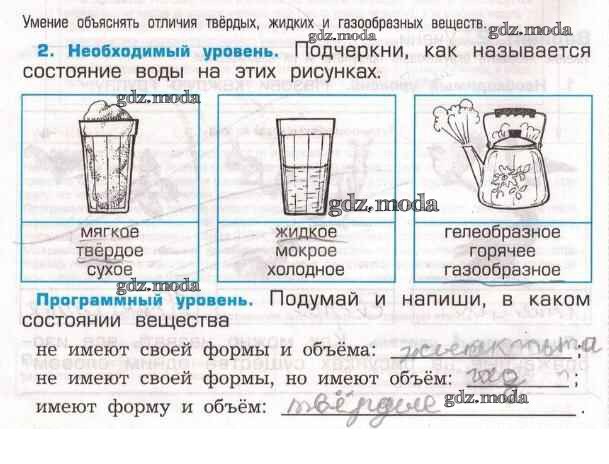 Умение объяснять отличия твёрдых, жидких и газообразных веществ.
gdz.moda
2. Необходимый уровень. Подчеркни, как называется
состояние воды на этих рисунках.
gdz.moda gdz.moda gdz.moda
gdz.moda
мягкое жидкое гелеобразное
твёрдое мокрое горячее
сухое холодное газообразное
gdz.moda
Программный уровень. Подумай и напиши, в каком
состоянии вещества
не имеют своей формы и объёма: ;
gdz.moda
не имеют своей формы, но имеют объём: ;
gdz.moda
имеют форму и объём: твёрдые .
gdz.moda